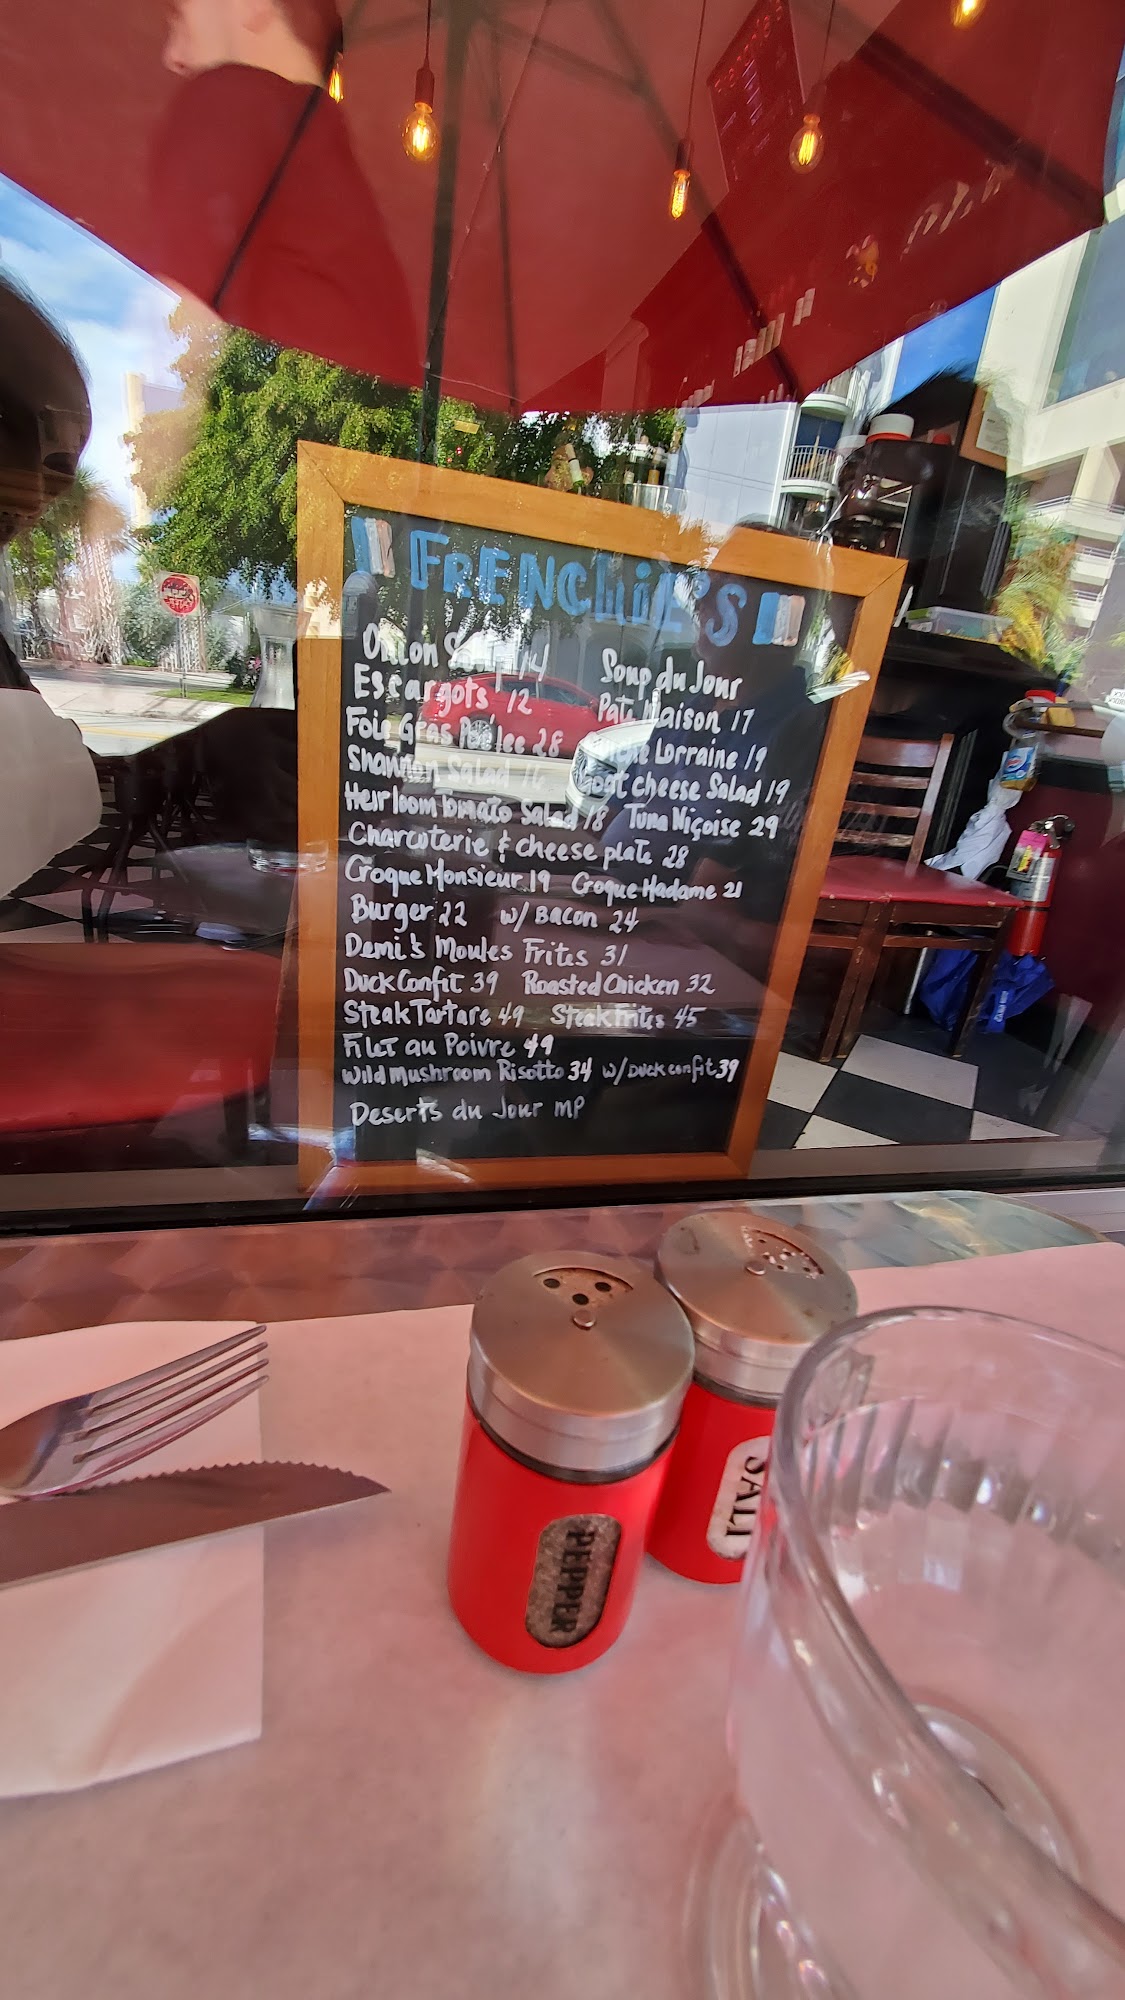 FRENCHIE'S
Onion Soup 14 Soup du Jour
Escargots 12 Pate Maison 17
Foie Gras Poêlée 28 Quiche Lorraine 19
Shannon Salad Goat cheese Salad 19
Heirloom Tomato Salad 18 Tuna Niçoise 29
Charcuterie & cheese plate 28
Croque Monsieur 19 Croque Madame 21
Burger 22 w/ Bacon 24
Demi's Moules Frites 31
Duck Confit 39 Roasted Chicken 32
Steak Tartare 49 Steak Frites 45
Filet au Poivre 49
Wild Mushroom Risotto 34 w/ Duck confit 39
Deserts du Jour MP
PEPPER
SALT